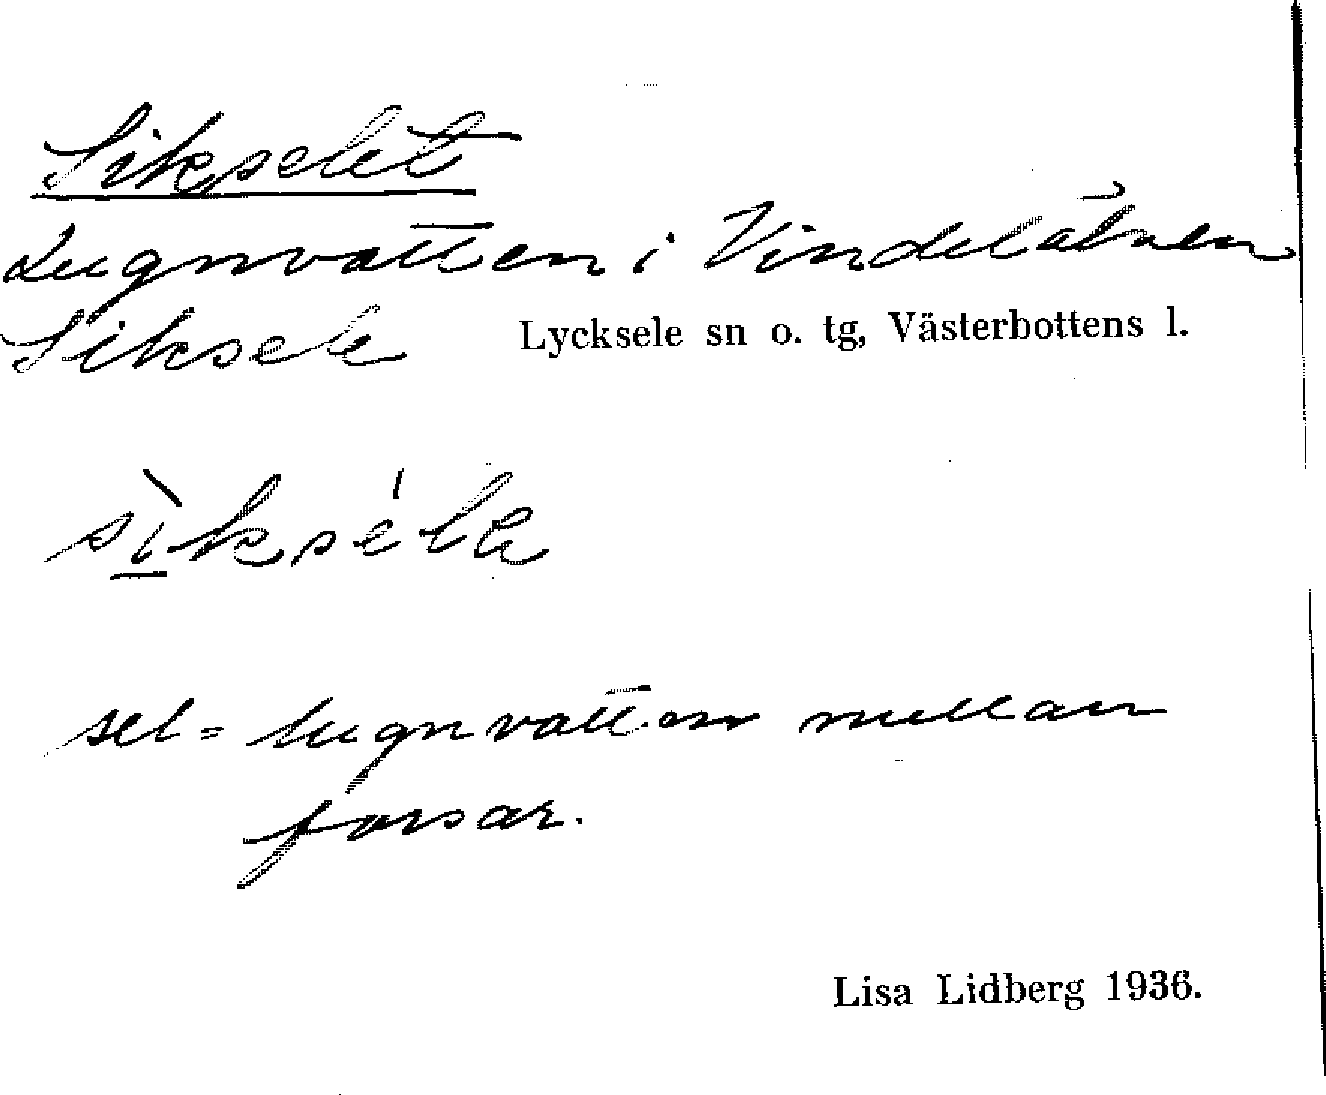 Sikselet
Lugnvatten i Vindelälven
Siksele Lycksele sn o. tg, Västerbottens l.
sel = lugnvatten mellan
forsar.
Lisa Lidberg 1936.